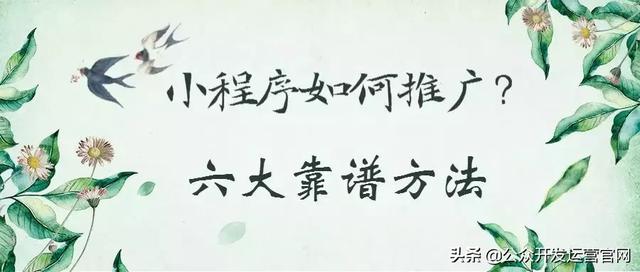 小程序如何推广?
六大靠谱方法
头条 @公众开发运营官网